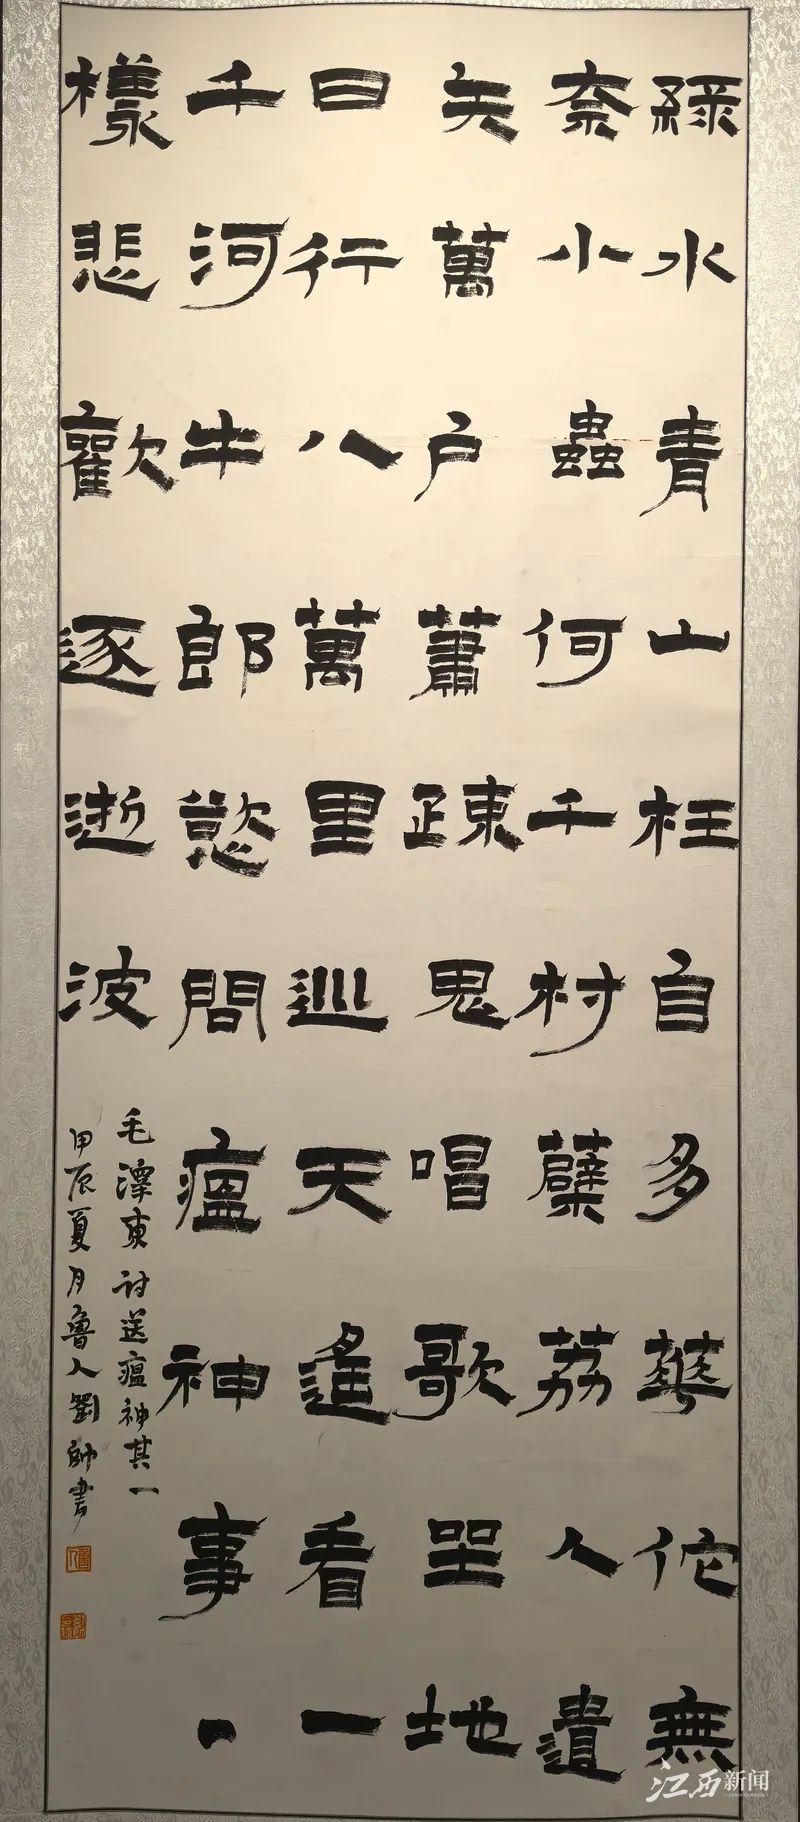 綠水青山枉自多華佗無
奈小蟲何千村薜荔人遺
矢萬戶蕭疎鬼唱歌坐地
日行八萬里巡天遙看一
千河牛郎慾問瘟神事一
樣悲歡逐逝波
毛澤東詩送瘟神其一
甲辰夏月魯人劉帥書
江西新闻